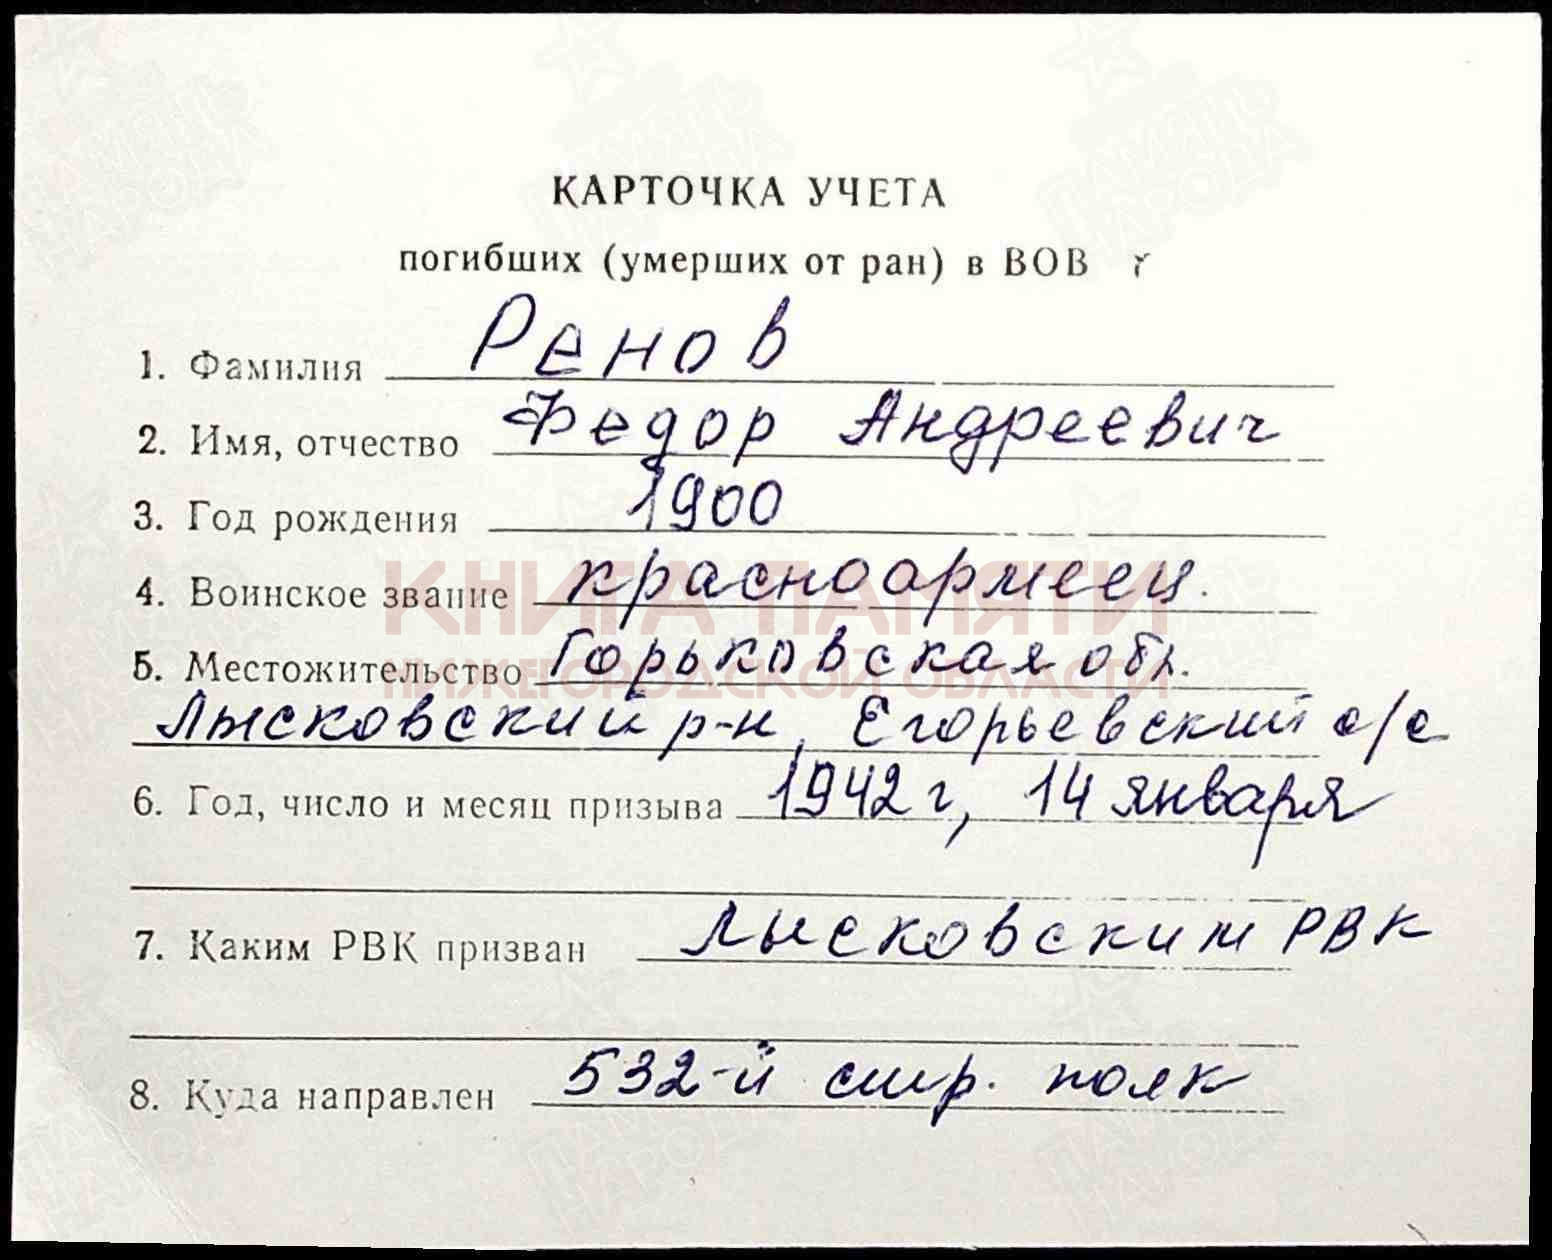 КАРТОЧКА УЧЕТА
погибших (умерших от ран) в ВОВ г
1. Фамилия Ренов
2. Имя, отчество Федор Андреевич
3. Год рождения 1900
4. Воинское звание красноармеец.
КНИГА ПАМЯТИ
5. Местожительство Горьковская обл.
НИЖЕГОРОДСКОЙ ОБЛАСТИ
Лысковский р-н, Егорьевский с/с
6. Год, число и месяц призыва 1942 г, 14 января
7. Каким РВК призван Лысковским РВК
8. Куда направлен 532-й стр. полк